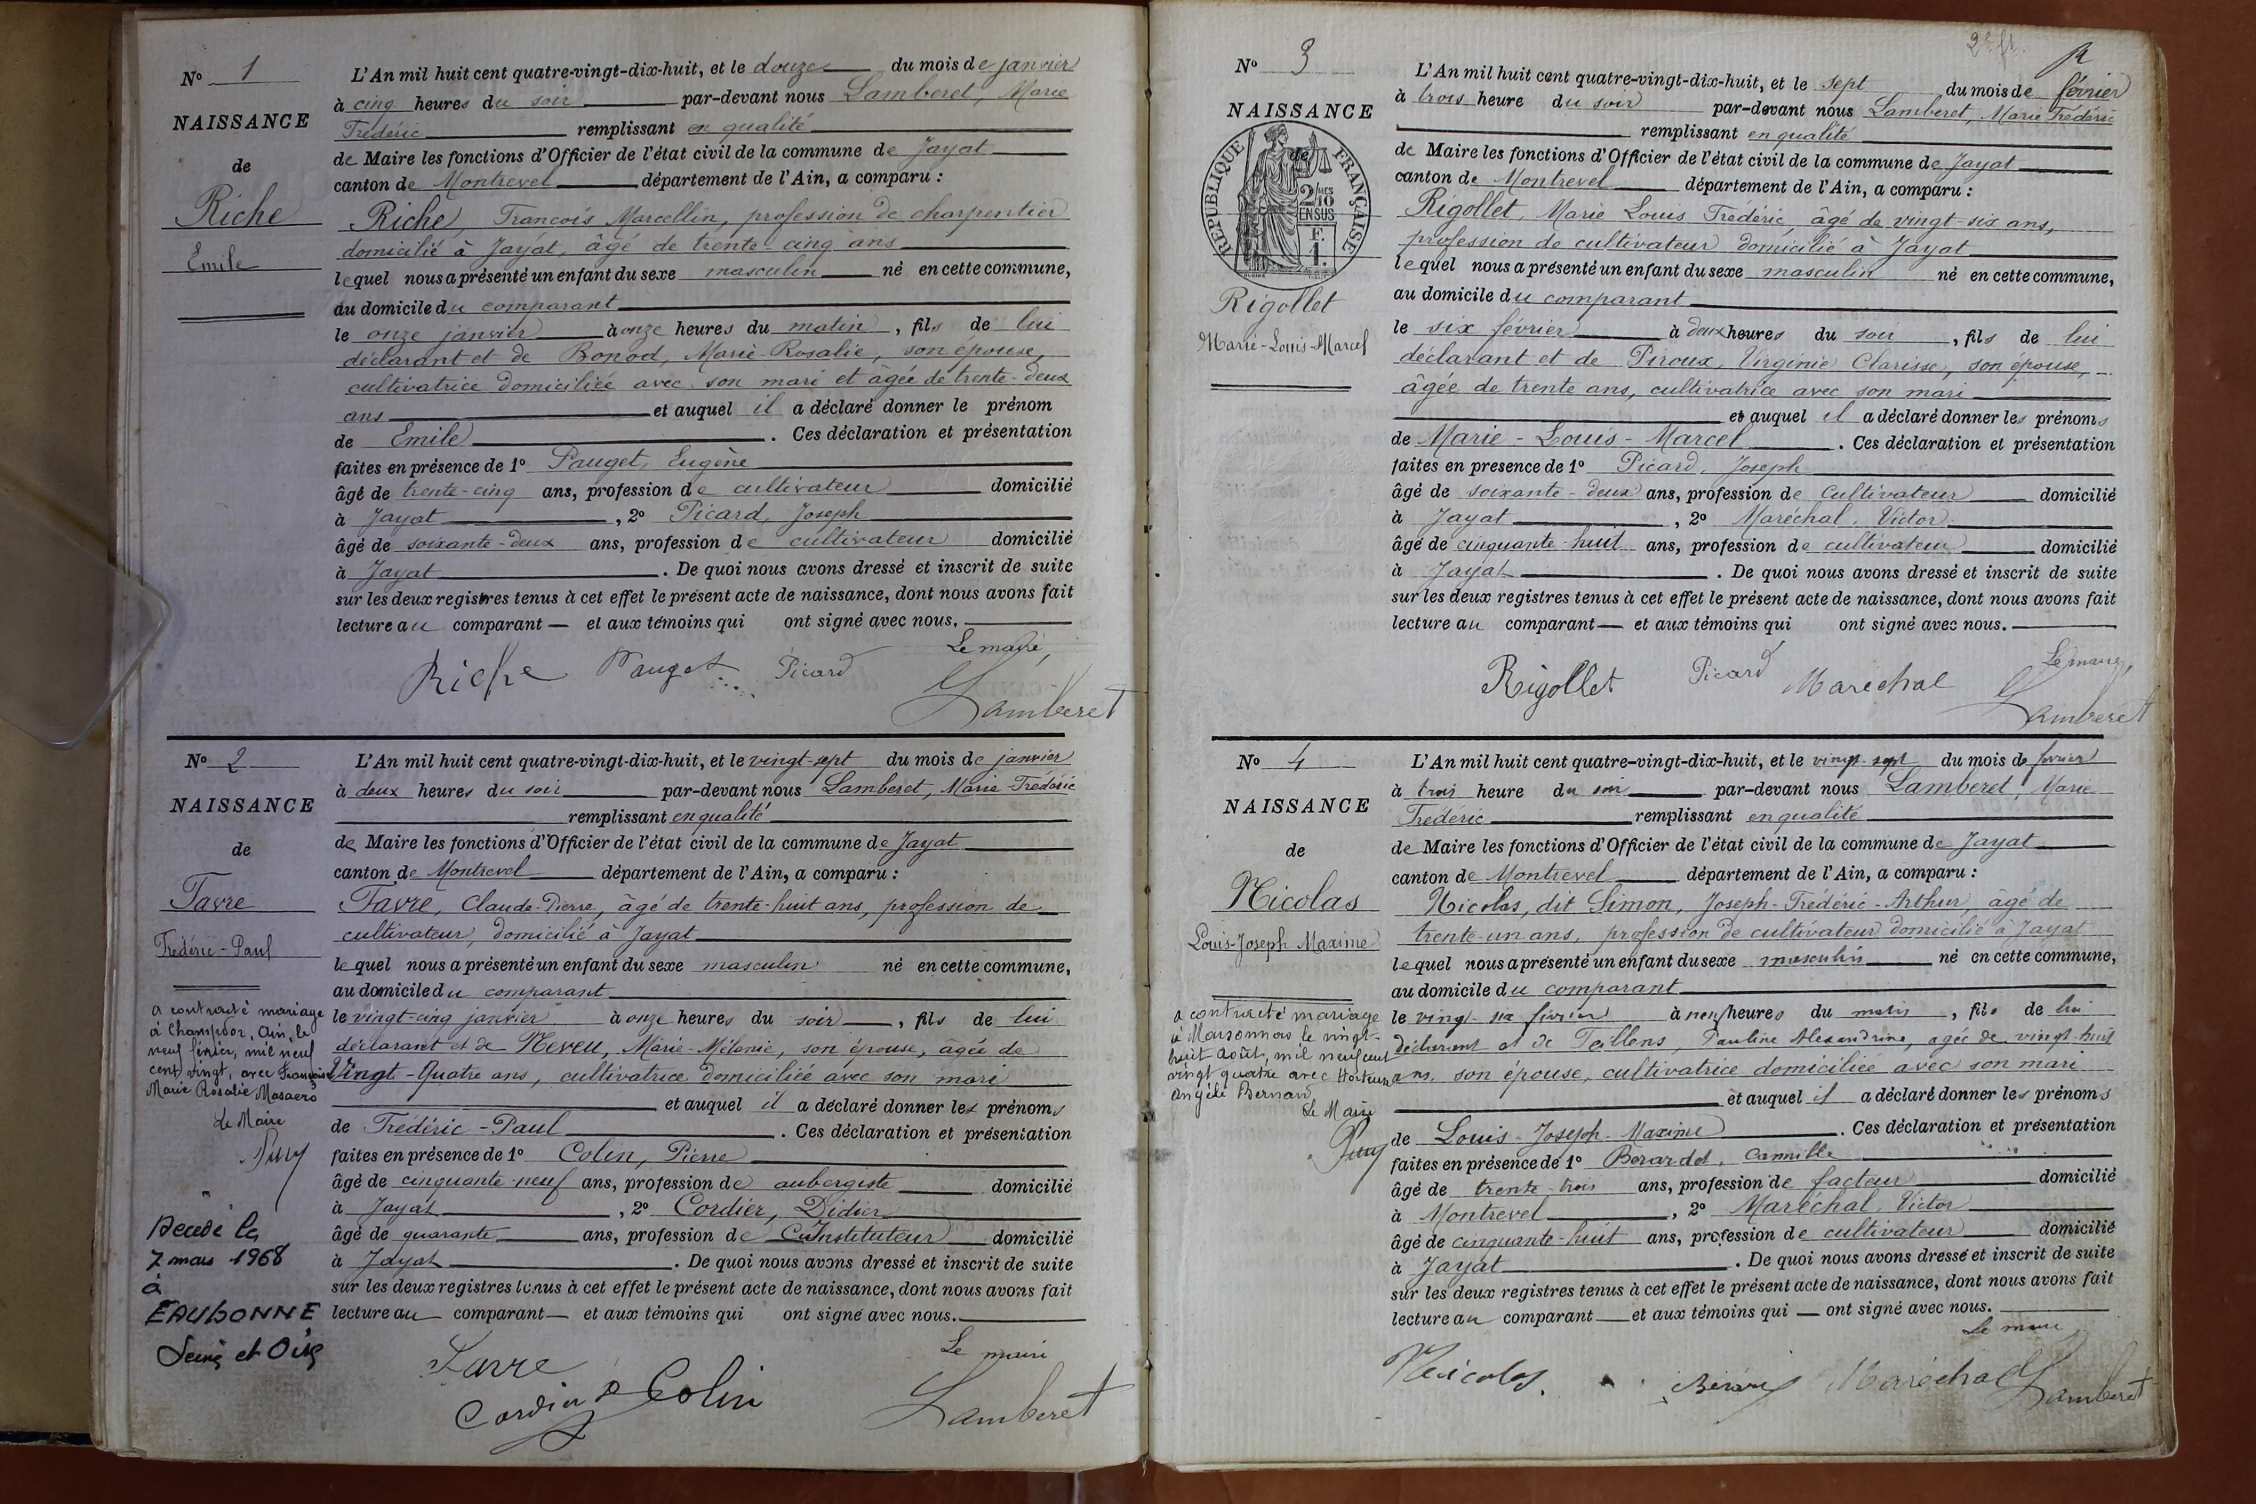 N° 1
NAISSANCE
de
Riche
Emile
L'An mil huit cent quatre-vingt-dix-huit, et le douze du mois de janvier
à cinq heures du soir par-devant nous Lamberet, Marie
Frédéric remplissant en qualité
de Maire les fonctions d'Officier de l'état civil de la commune de Jayat
canton de Montrevel département de l'Ain, a comparu :
Riche, François Marcellin, profession de charpentier
domicilié à Jayat, âgé de trente-cinq ans
lequel nous a présenté un enfant du sexe masculin né en cette commune,
au domicile du comparant
le onze janvier à onze heures du matin, fils de lui
déclarant et de Bonod, Marie-Rosalie, son épouse,
cultivatrice domiciliée avec son mari et âgée de trente-deux
ans et auquel il a déclaré donner le prénom
de Emile. Ces déclaration et présentation
faites en présence de 1° Pauget, Eugène
âgé de trente-cinq ans, profession de cultivateur domicilié
à Jayat, 2° Picard, Joseph
âgé de soixante-deux ans, profession de cultivateur domicilié
à Jayat. De quoi nous avons dressé et inscrit de suite
sur les deux registres tenus à cet effet le présent acte de naissance, dont nous avons fait
lecture au comparant et aux témoins qui ont signé avec nous.
Le maire,
Riche Pauget Picard
Lamberet
N° 2
NAISSANCE
de
Favre
Frédéric-Paul
a contracté mariage
à Champdor, Ain, le
neuf février, mil neuf
cent vingt, avec Françoise
Marie Rosalie Masaero
Le Maire
Décédé le
7 mars 1968
à
EAUBONNE
Seine et Oise
L'An mil huit cent quatre-vingt-dix-huit, et le vingt-sept du mois de janvier
à deux heures du soir par-devant nous Lamberet, Marie-Frédéric
remplissant en qualité
de Maire les fonctions d'Officier de l'état civil de la commune de Jayat
canton de Montrevel département de l'Ain, a comparu :
Favre, Claude-Pierre, âgé de trente-huit ans, profession de
cultivateur, domicilié à Jayat
lequel nous a présenté un enfant du sexe masculin né en cette commune,
au domicile du comparant
le vingt-cinq janvier à onze heures du soir, fils de lui
déclarant et de Neveu, Marie-Mélanie, son épouse, âgée de
Vingt-Quatre ans, cultivatrice domiciliée avec son mari
et auquel il a déclaré donner les prénoms
de Frédéric-Paul. Ces déclaration et présentation
faites en présence de 1° Colin, Pierre
âgé de cinquante-neuf ans, profession de aubergiste domicilié
à Jayat, 2° Cordier, Didier
âgé de quarante ans, profession de Instituteur domicilié
à Jayat. De quoi nous avons dressé et inscrit de suite
sur les deux registres tenus à cet effet le présent acte de naissance, dont nous avons fait
lecture au comparant et aux témoins qui ont signé avec nous.
Le maire
Favre
Cordier Colin
Lamberet
N° 3
NAISSANCE
de
REPUBLIQUE FRANÇAISE
2/10
EN SUS
F.
1.
Rigollet
Marie-Louis-Marcel
L'An mil huit cent quatre-vingt-dix-huit, et le sept du mois de février
à trois heure du soir par-devant nous Lamberet, Marie Frédéric
remplissant en qualité
de Maire les fonctions d'Officier de l'état civil de la commune de Jayat
canton de Montrevel département de l'Ain, a comparu :
Rigollet, Marie Louis Frédéric, âgé de vingt-six ans,
profession de cultivateur domicilié à Jayat
lequel nous a présenté un enfant du sexe masculin né en cette commune,
au domicile du comparant
le six février à deux heures du soir, fils de lui
déclarant et de Piroux, Virginie Clarisse, son épouse,
âgée de trente ans, cultivatrice avec son mari
et auquel il a déclaré donner les prénoms
de Marie-Louis-Marcel. Ces déclaration et présentation
faites en presence de 1° Picard, Joseph
âgé de soixante-deux ans, profession de Cultivateur domicilié
à Jayat, 2° Maréchal, Victor
âgé de cinquante-huit ans, profession de cultivateur domicilié
à Jayat. De quoi nous avons dressé et inscrit de suite
sur les deux registres tenus à cet effet le présent acte de naissance, dont nous avons fait
lecture au comparant et aux témoins qui ont signé avec nous.
Le maire,
Rigollet Picard Maréchal
Lamberet
N° 4
NAISSANCE
de
Nicolas
Louis-Joseph Maxime
a contracté mariage
à Marsonnas le vingt-
huit août, mil neuf cent
vingt quatre avec Hortense
Angèle Bernard
Le Maire
L'An mil huit cent quatre-vingt-dix-huit, et le vingt-sept du mois de février
à trois heure du soir par-devant nous Lamberet, Marie
Frédéric remplissant en qualité
de Maire les fonctions d'Officier de l'état civil de la commune de Jayat
canton de Montrevel département de l'Ain, a comparu :
Nicolas, dit Simon, Joseph-Frédéric-Arthur âgé de
trente-un ans, profession de cultivateur domicilié à Jayat
lequel nous a présenté un enfant du sexe masculin né en cette commune,
au domicile du comparant
le vingt-six février à neuf heures du matin, fils de lui
déclarant et de Pauline Alexandrine, agée de vingt-huit
ans, son épouse, cultivatrice domiciliée avec son mari
et auquel il a déclaré donner les prénoms
de Louis-Joseph-Maxime. Ces déclaration et présentation
faites en présence de 1° Camille
âgé de trente-trois ans, profession de facteur domicilié
à Montrevel, 2° Maréchal, Victor
âgé de cinquante-huit ans, profession de cultivateur domicilié
à Jayat. De quoi nous avons dressé et inscrit de suite
sur les deux registres tenus à cet effet le présent acte de naissance, dont nous avons fait
lecture au comparant et aux témoins qui ont signé avec nous.
Le maire
Nicolas Maréchal
Lamberet